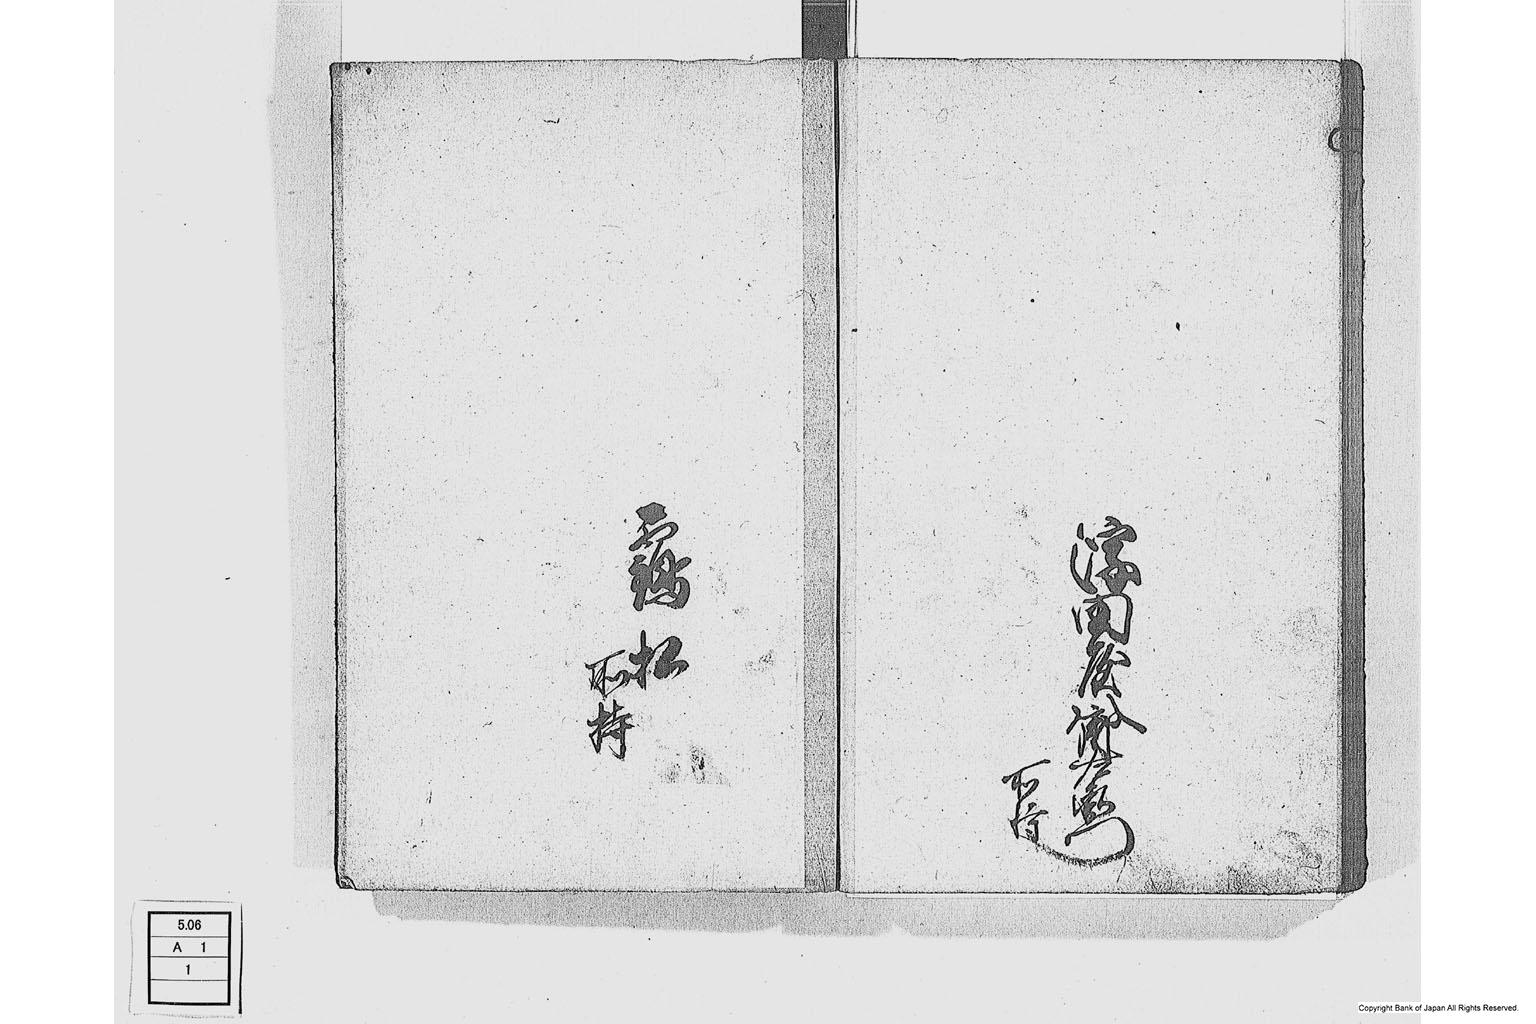 田屋
所持
靏松
所持
5.06
A 1
1
Copyright Bank of Japan All Rights Reserved.